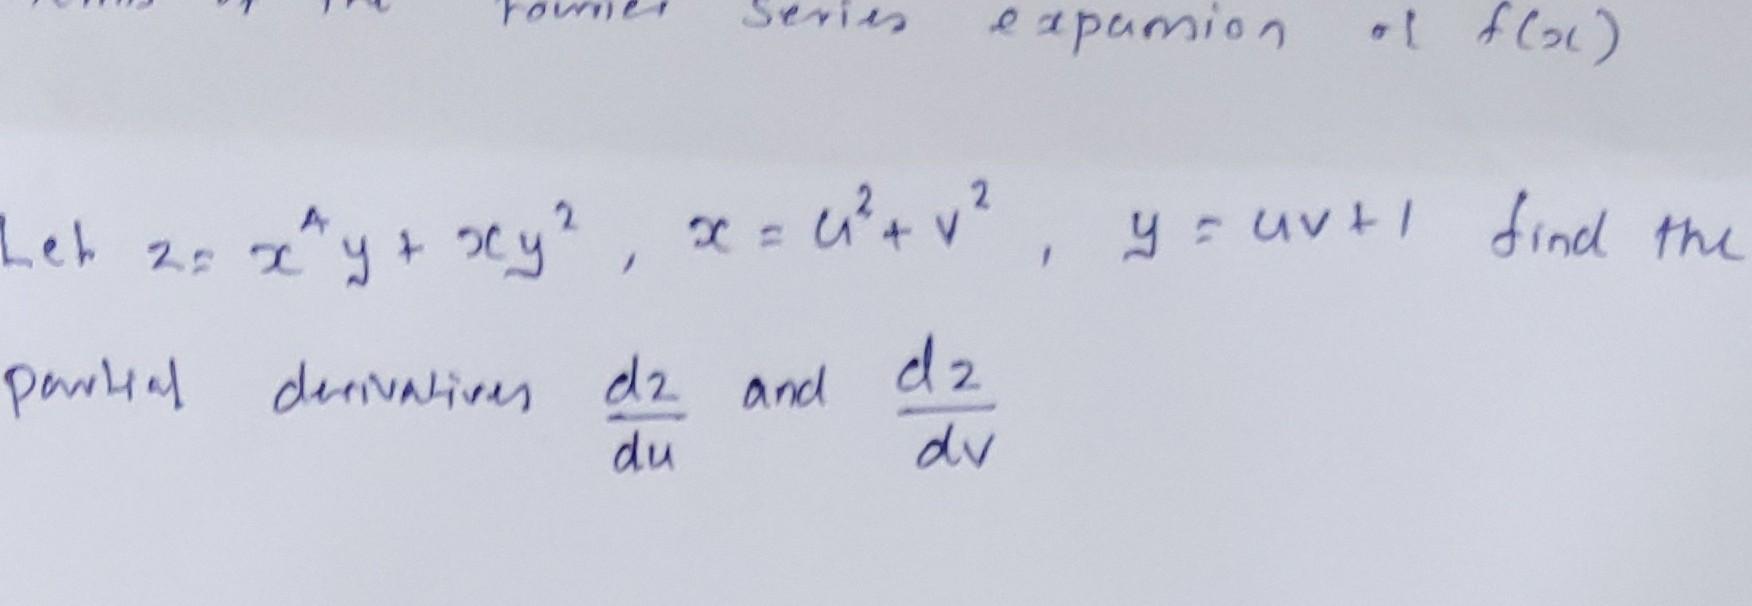 of the Fourier Series expansion of f(x)
Let z = x⁴y + xy², x = u² + v², y = uv + 1 find the
partial derivatives dz/du and dz/dv